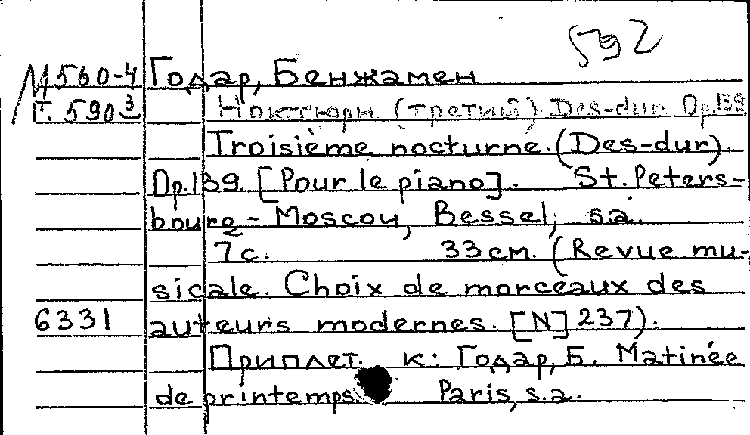 592
М 560-4 Годар, Бенжамен
Г. 590³ Ноктюрн (третий) Des-dur. Op.139
Troisième nocturne. (Des-dur).
Op.139. [Pour le piano]. St. Peters-
bourg - Moscou, Bessel, s.a.
7с. 33см. (Revue mu-
sicale. Choix de morceaux des
6331 auteurs modernes. [N] 237).
Приплет. к: Годар, Б. Matinée
de printemps. Paris, s.a.